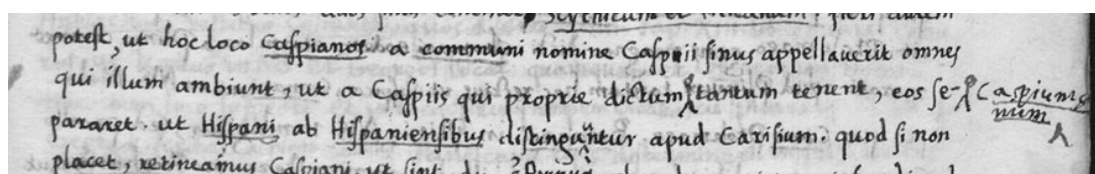 Scythicum et
potest, ut hoc loco Caspianos a communi nomine Caspii sinus appellaverit omnes
qui illum ambiunt, ut a Caspiis qui proprie dictum tantum tenent, eos se- Caspium sinum
pararet. ut Hispani ab Hispaniensibus distinguntur apud Carisium. quod si non
placet, retineamus Caspiani, ut sint